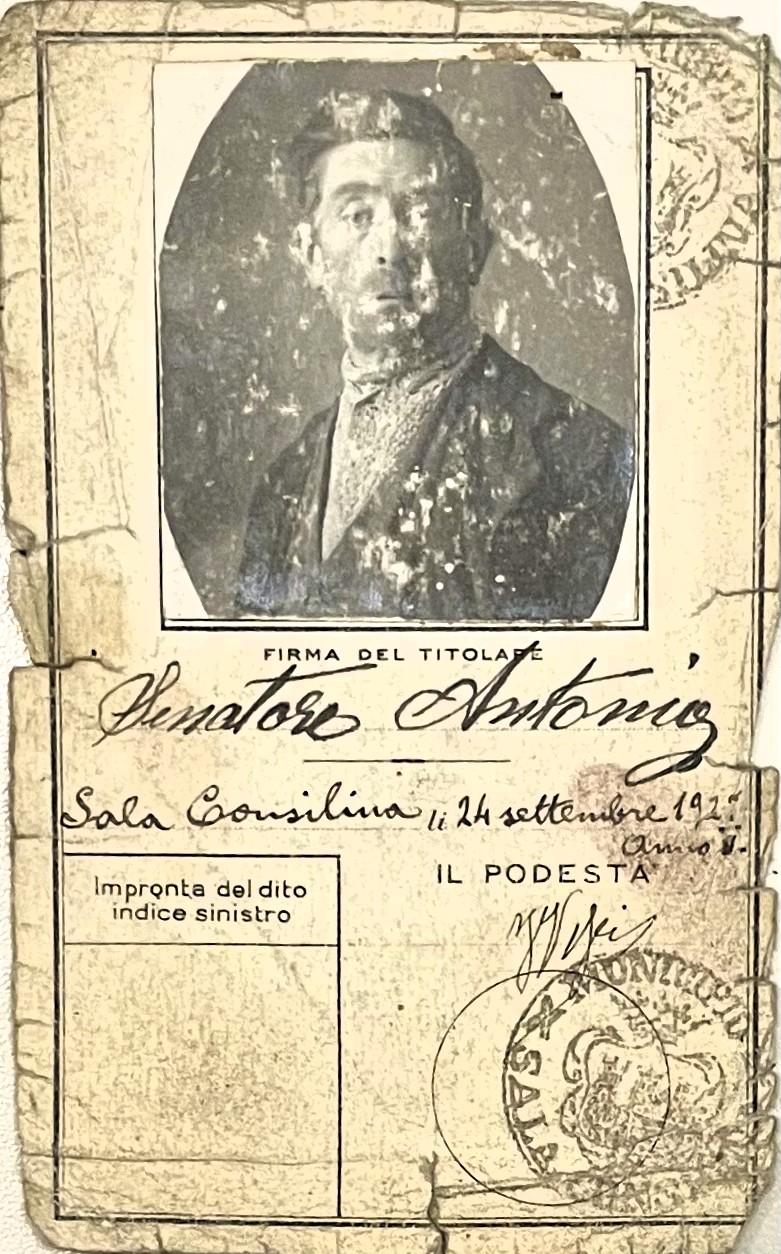 FIRMA DEL TITOLARE
Senatore Antonio
Sala Consilina, li 24 settembre 192
Anno
IL PODESTA
Impronta del dito
indice sinistro
MUNICIPIO
SALA